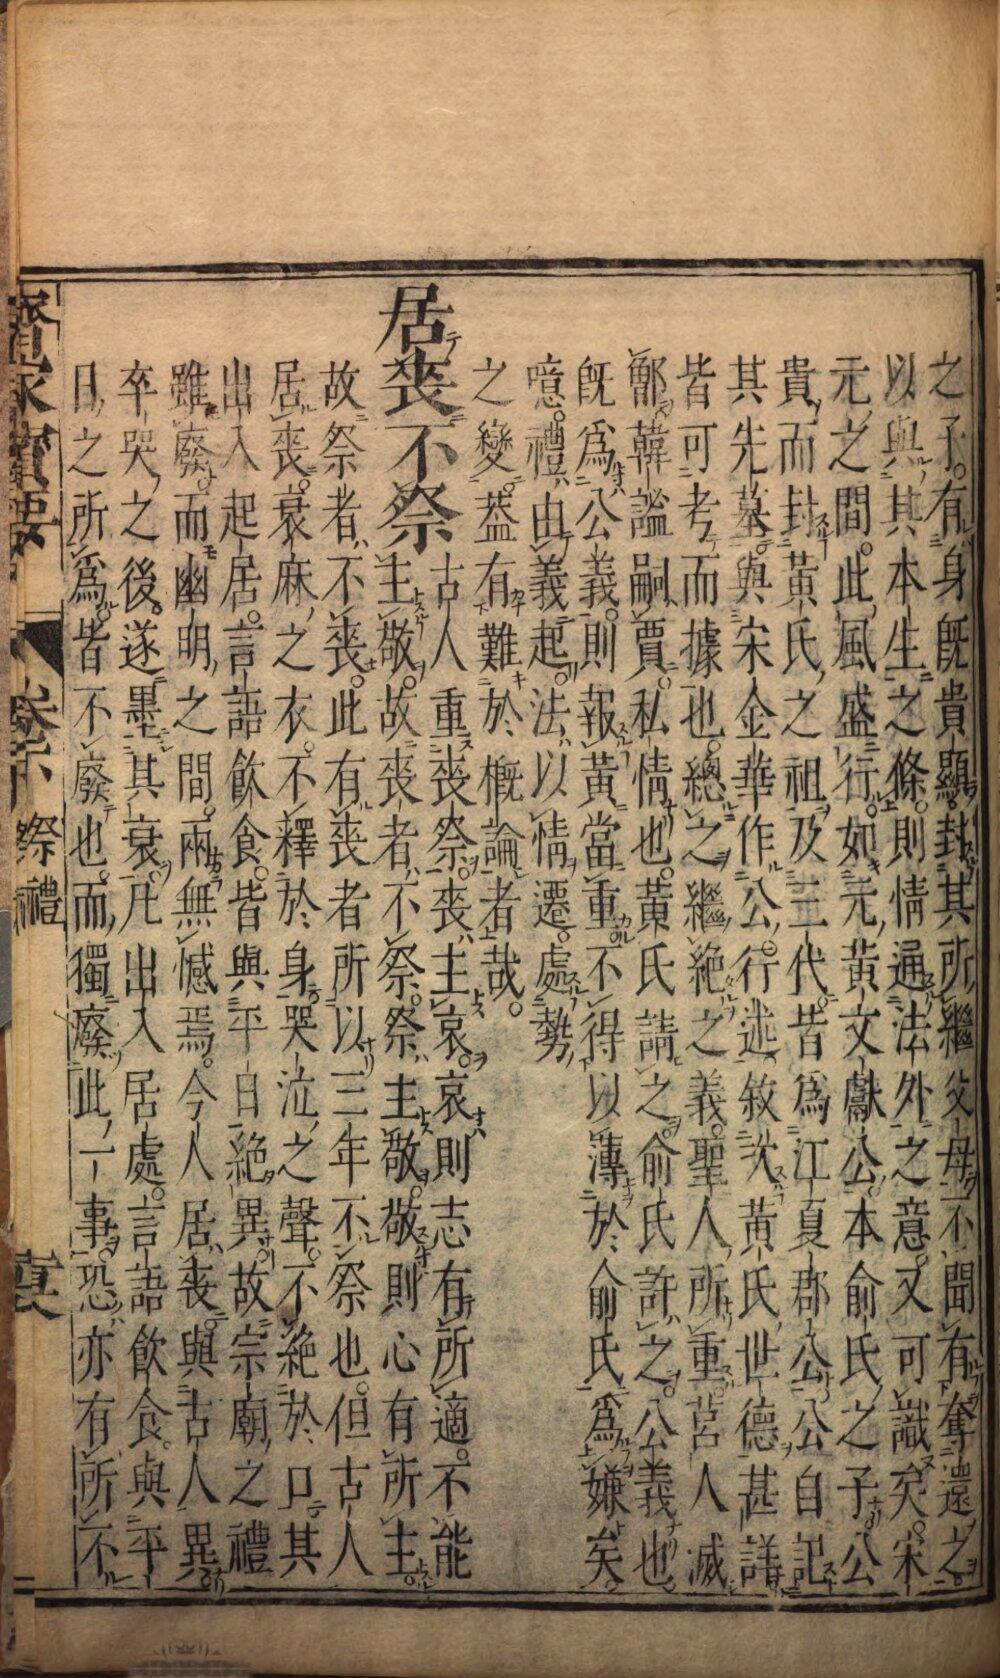 之子。有身既貴顯。封其所繼父母不聞有奪還之。
以與其本生之條。則情通法外之意。又可識矣。宋
元之間。此風盛行。如元黃文獻公本俞氏之子公
貴而封黃氏之祖及三代皆爲江夏郡公公自記
其先墓與宋金華作公行述敘次黃氏世德甚詳
皆可考而據也。總之繼絶之義。聖人所重。莒人滅
鄫韓謚嗣賈。私情也。黃氏請之俞氏許之。公義也
既爲公義。則報黃當重。不得以薄於俞氏爲嫌矣。
噫。禮由義起。法以情遷。處勢
之變。葢有難於概論者哉。
居喪不祭 古人重喪祭。喪主哀。哀則志有所適。不能
主敬。故喪者不祭。祭主敬。敬則心有所主。
故祭者不喪。此有喪者所以三年不祭也。但古人
居喪。衰麻之衣。不釋於身。哭泣之聲。不絶於口。其
出入起居。言語飲食。皆與平日絶異。故宗廟之禮
雖廢。而幽明之間。兩無憾焉。今人居喪與古人異。
卒哭之後。遂墨其衰。凡出入居處。言語飲食。與平
日之所爲。皆不廢也。而獨廢此一事。恐亦有所不
齊家寶要 卷下 祭禮